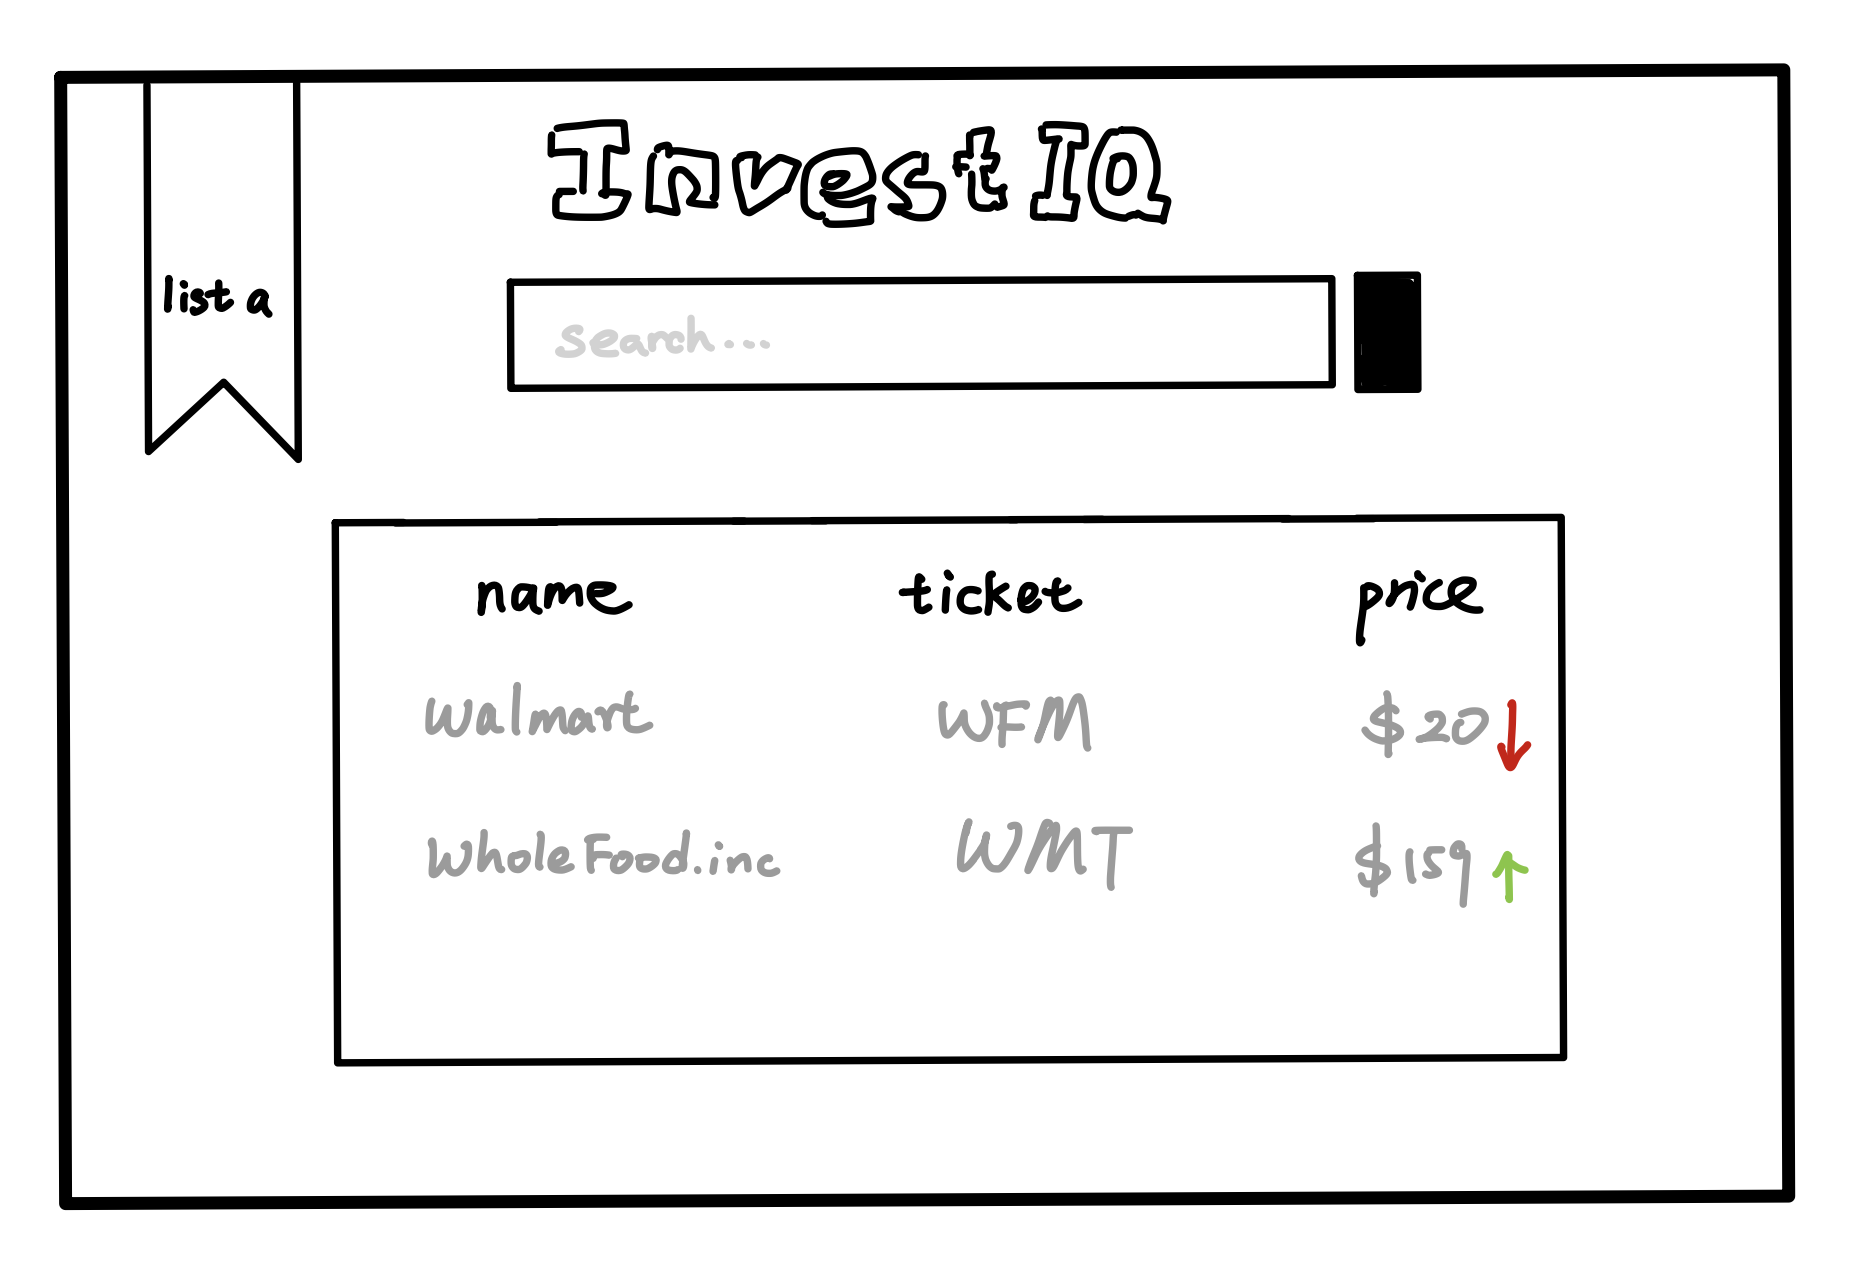 InvestIQ
list a
search...
name ticket price
Walmart WFM $20
WholeFood.inc WMT $159